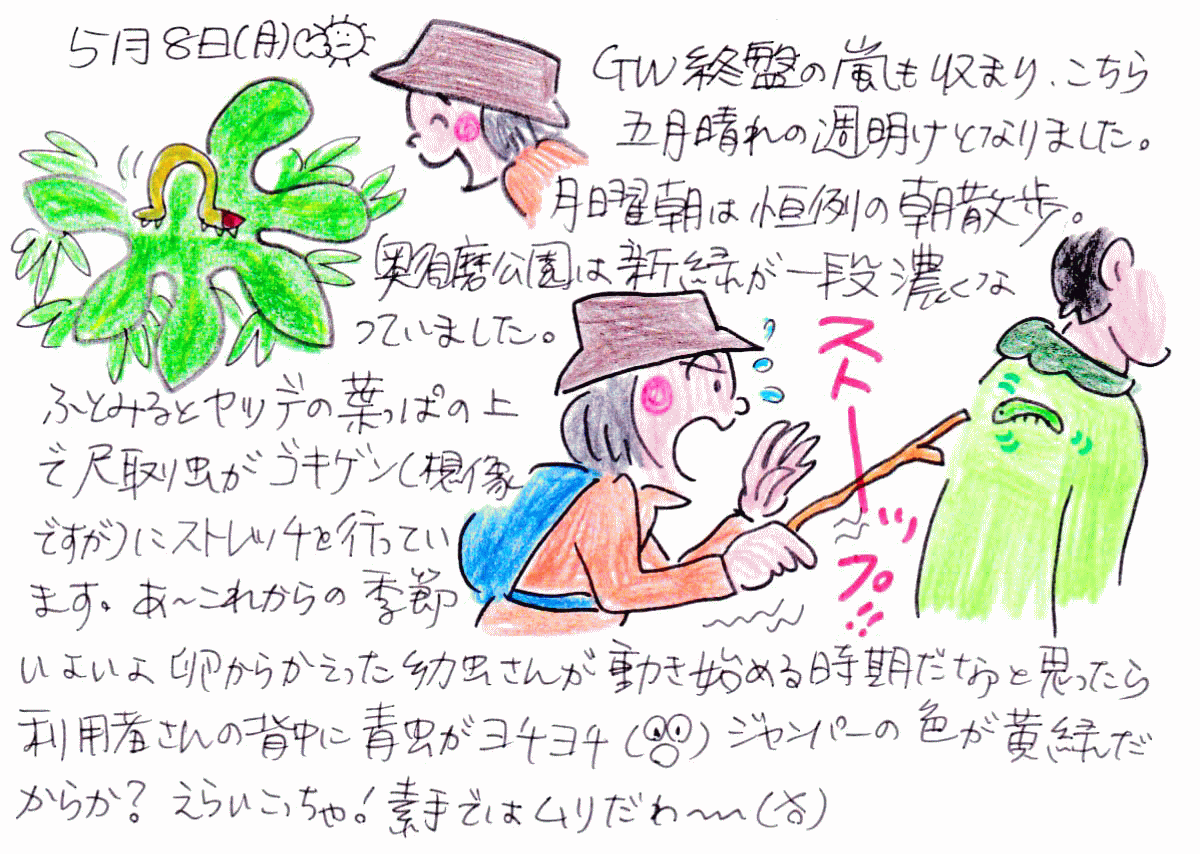 5月8日(月)
GW終盤の嵐も収まり、こちら
五月晴れの週明けとなりました。
月曜朝は恒例の朝散歩。
奥須磨公園は新緑が一段濃くな
っていました。
ふとみるとヤツデの葉っぱの上
で尺取り虫がゴキゲン(想像
ですが)にストレッチを行ってい
ます。あ〜これからの季節
いよいよ卵からかえった幼虫さんが動き始める時期だなぁと思ったら
利用者さんの背中に青虫がヨチヨチ( )ジャンパーの色が黄緑だ
からか?えらいこっちゃ!素手ではムリだわ〜(な)
ストーップ!!